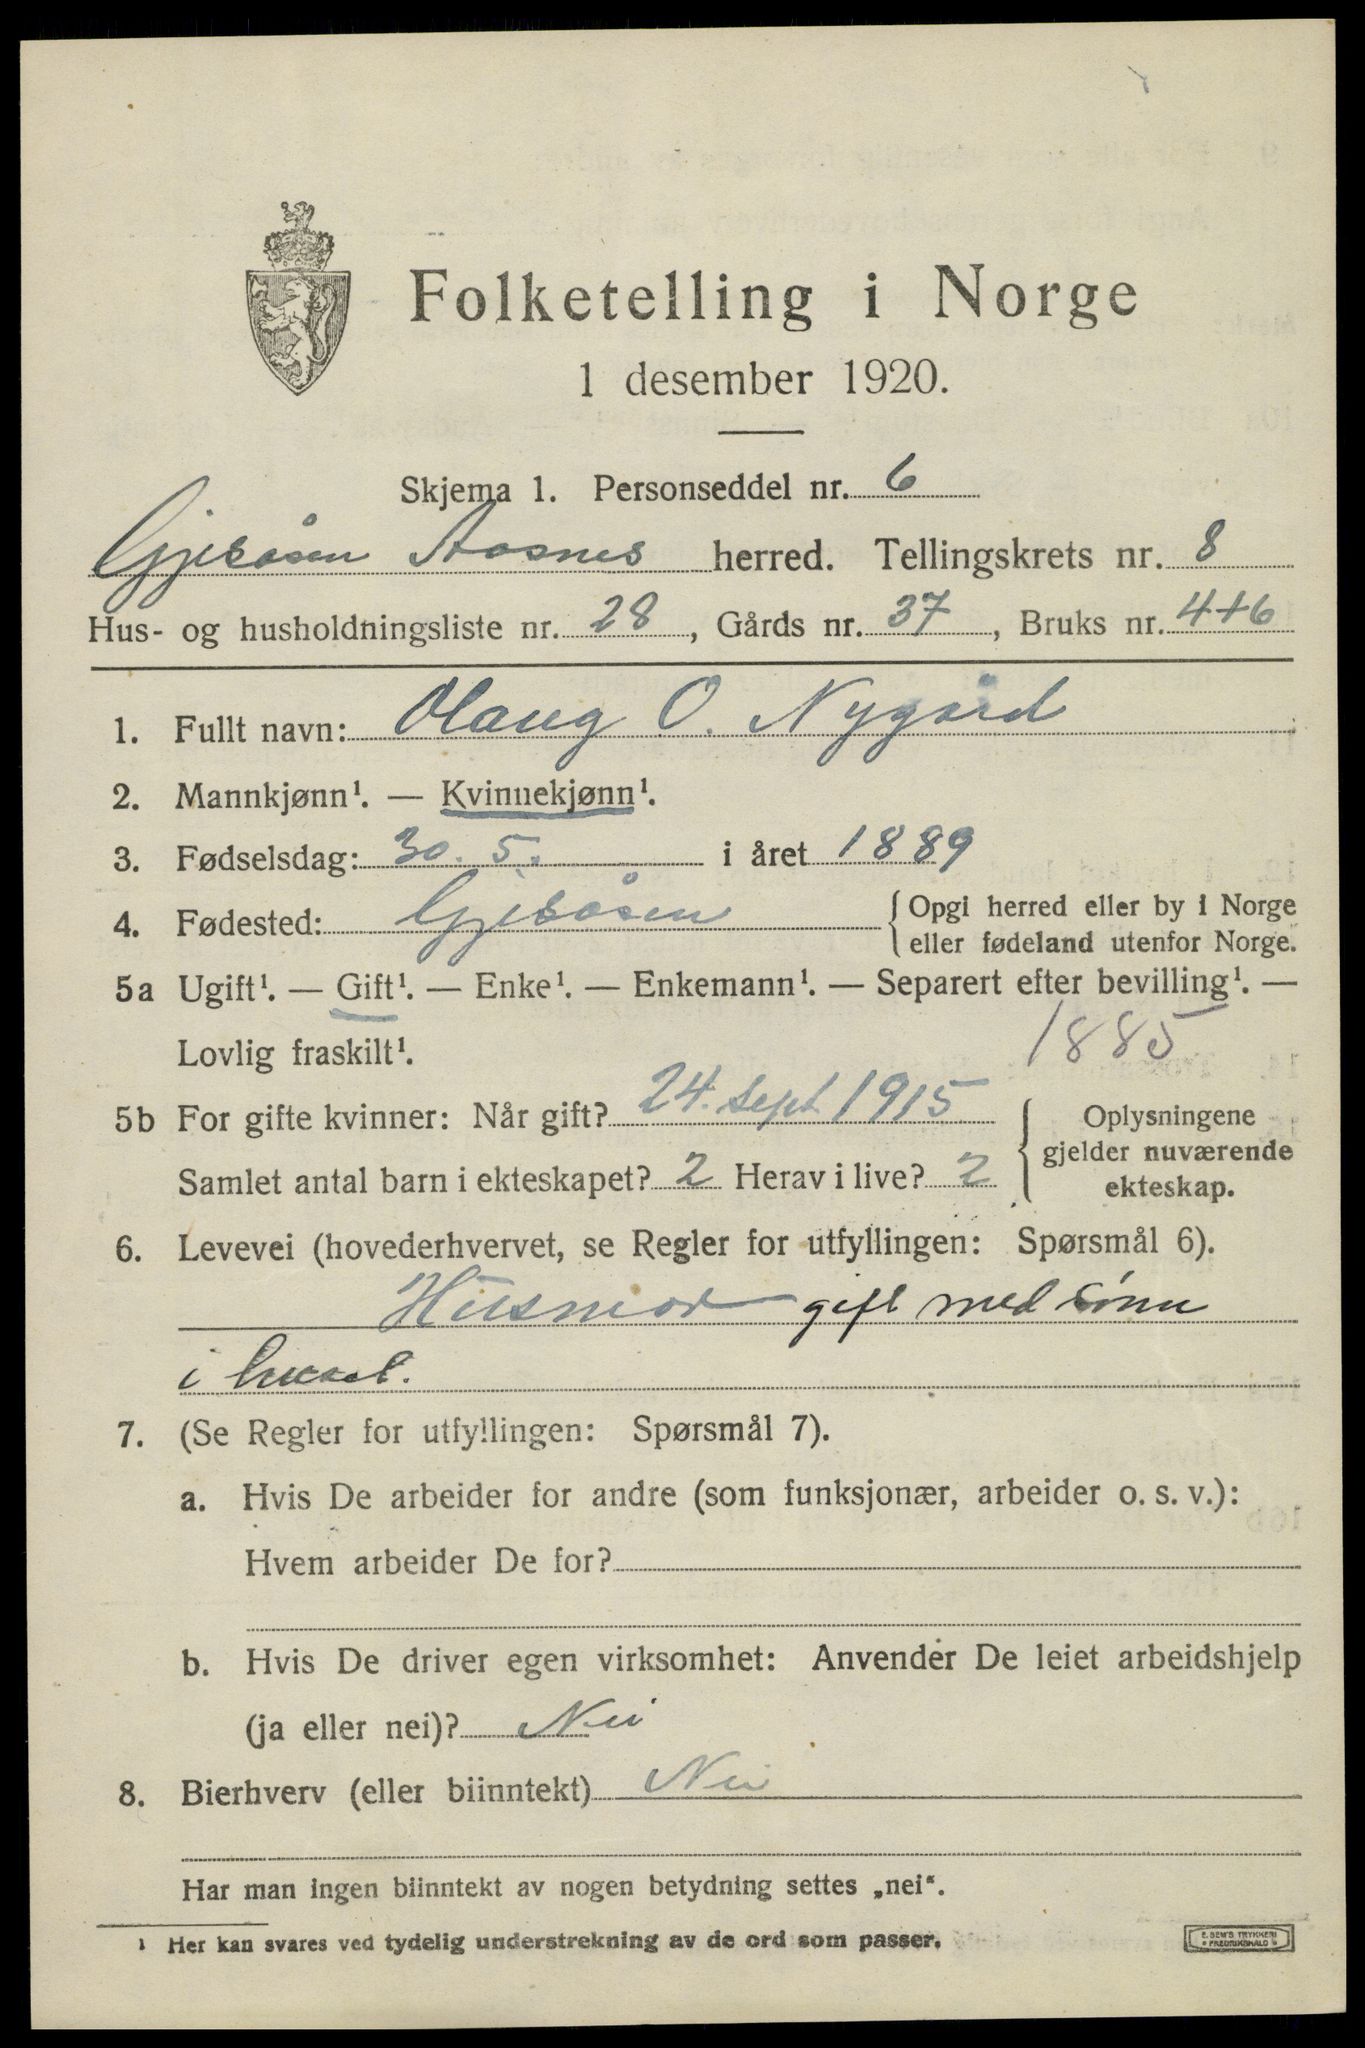 Folketelling i Norge
1 desember 1920.
Skjema 1. Personseddel nr. 6
Gjesåsen Aasnes herred. Tellingskrets nr. 8
Hus- og husholdningsliste nr. 28, Gårds nr. 37, Bruks nr. 4+6
1. Fullt navn: Olaug O. Nygård
2. Mannkjønn¹. — Kvinnekjønn¹.
3. Fødselsdag: 30. 5. i året 1889
4. Fødested: Gjesåsen { Opgi herred eller by i Norge
eller fødeland utenfor Norge.
5a Ugift¹. — Gift¹. — Enke¹. — Enkemann¹. — Separert efter bevilling¹. —
Lovlig fraskilt¹. 1885
5b For gifte kvinner: Når gift? 24. sept. 1915 { Oplysningene
gjelder nuværende
Samlet antal barn i ekteskapet? 2 Herav i live? 2
ekteskap.
6. Levevei (hovederhvervet, se Regler for utfyllingen: Spørsmål 6).
Husmor gift med sönn
i huset.
7. (Se Regler for utfyllingen: Spørsmål 7).
a. Hvis De arbeider for andre (som funksjonær, arbeider o. s. v.):
Hvem arbeider De for?
b. Hvis De driver egen virksomhet: Anvender De leiet arbeidshjelp
(ja eller nei)? Nei
8. Bierhverv (eller biinntekt) Nei
Har man ingen biinntekt av nogen betydning settes „nei“.
¹ Her kan svares ved tydelig understrekning av de ord som passer.
E. SEM'S TRYKKERI
FREDRIKSHALD